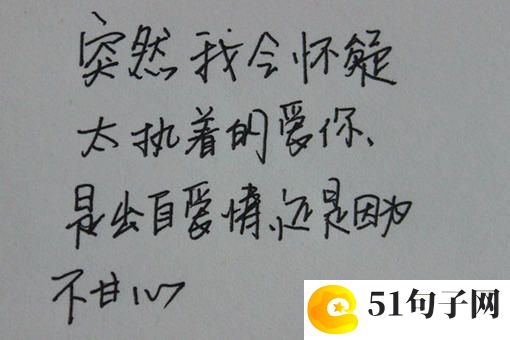 突然我会怀疑
太执着的爱你、
是出自爱情,还是因为
不甘心
51句子网